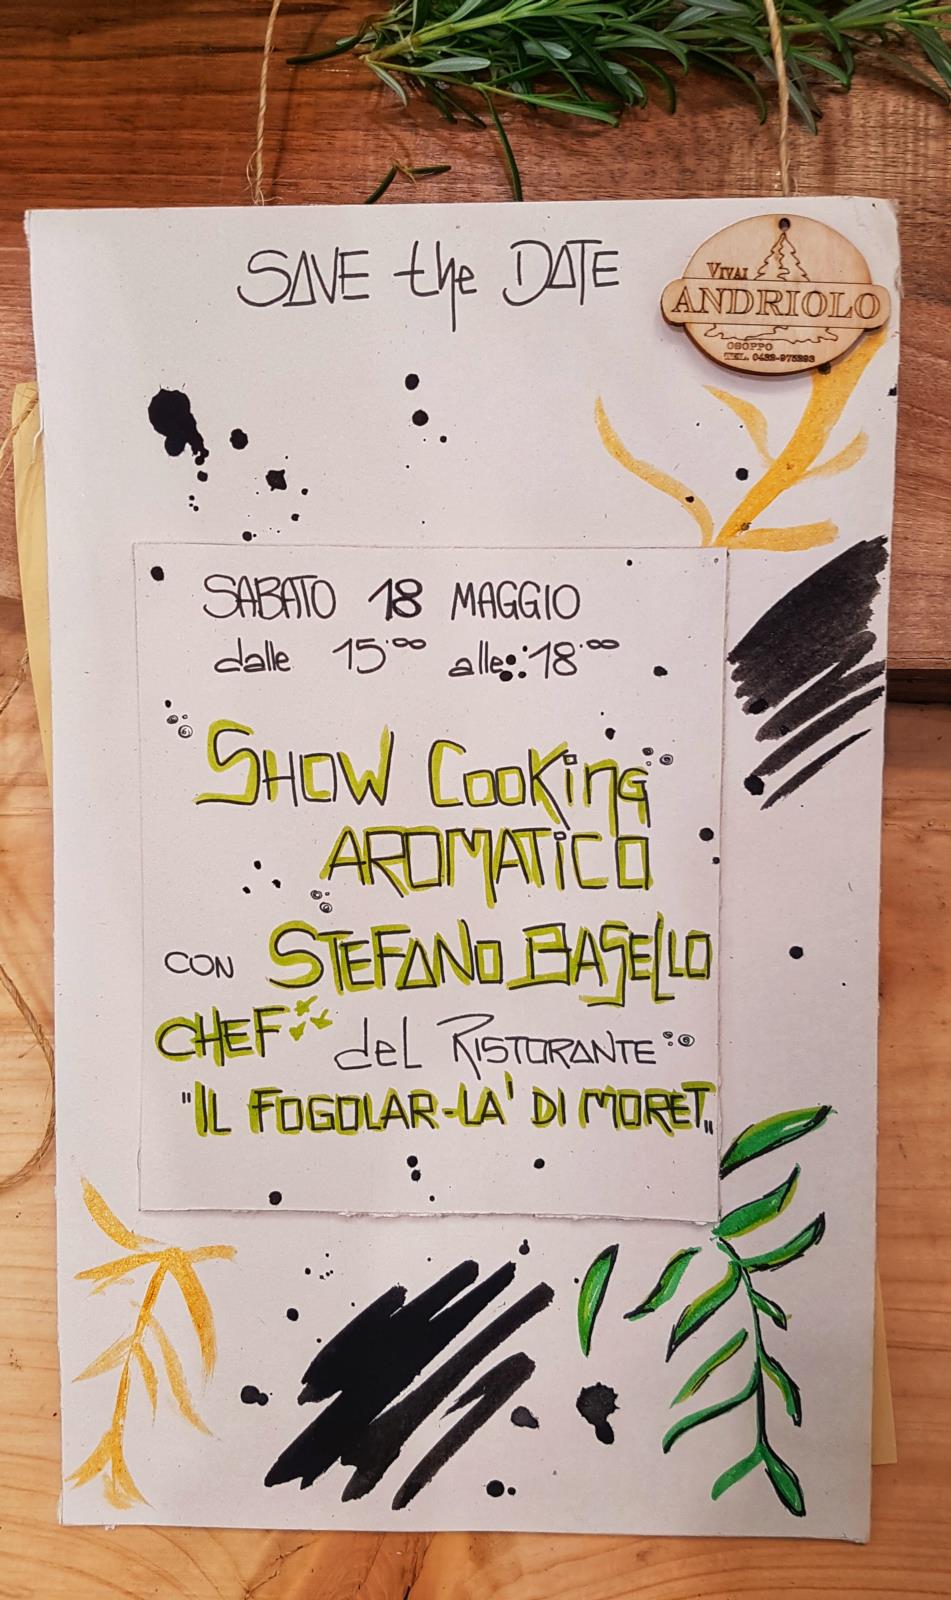 SAVE the DATE
VIVAI
ANDRIOLO
OSOPPO
TEL. 0432-975293
SABATO 18 MAGGIO
dalle 15.00 alle 18.00
SHOW COOKING
AROMATICO
CON STEFANO BASELLO
CHEF del RISTORANTE
"IL FOGOLAR-LA' DI MORET"